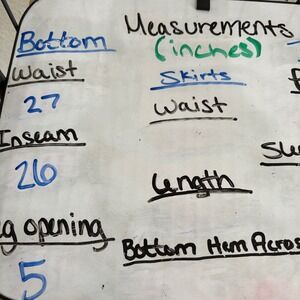 Measurements
(inches)
Bottom
Waist
27
Inseam
26
g opening
5
Skirts
Waist
Length
Bottom Hem Across
Sle